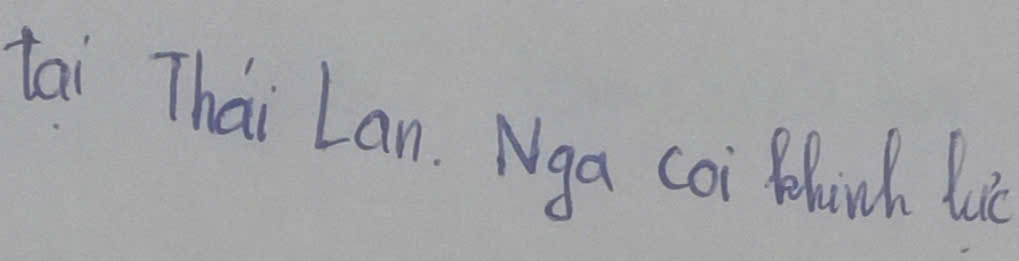 tại Thái Lan. Nga coi khinh lực